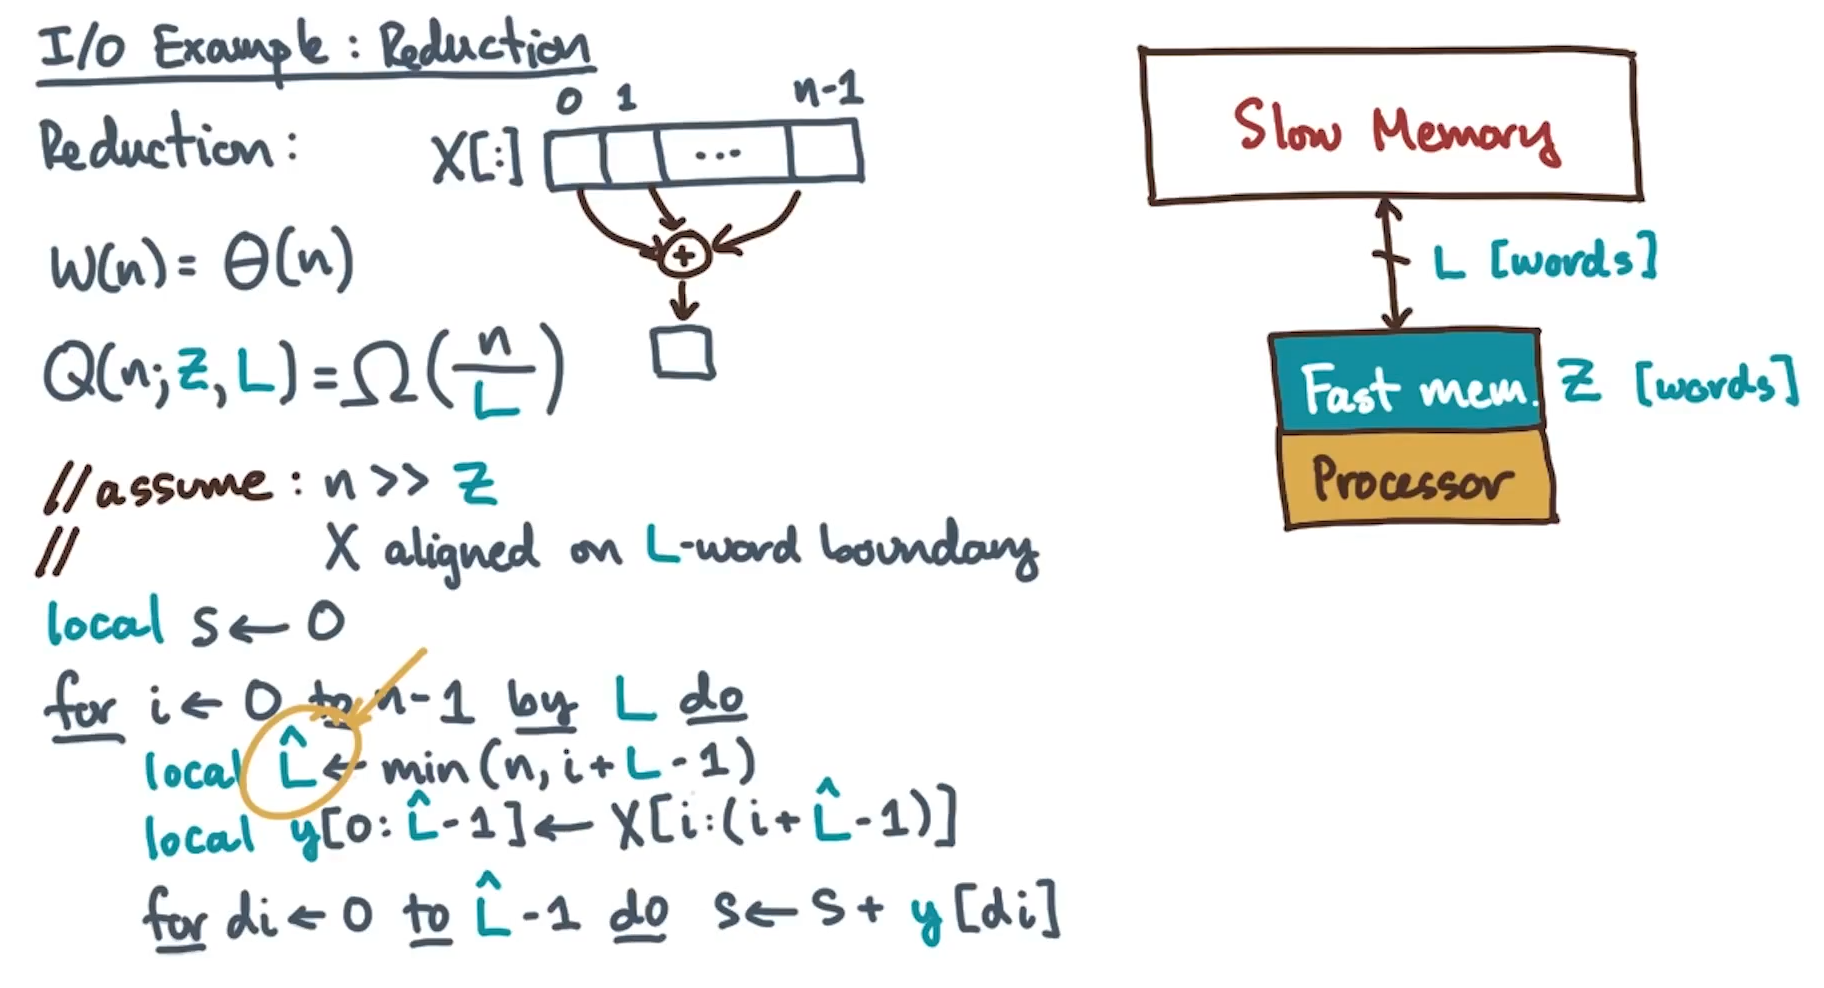 I/O Example: Reduction
Reduction:
X[:]
0 1 n-1
...
+
W(n) = Θ(n)
Q(n; Z, L) = Ω(n/L)
// assume: n >> Z
// X aligned on L-word boundary
local s ← 0
for i ← 0 to n-1 by L do
local L̂ ← min(n, i+L-1)
local y[0:L̂-1] ← X[i:(i+L̂-1)]
for di ← 0 to L̂-1 do s ← s + y[di]
Slow Memory
L [words]
Fast mem.
Z [words]
Processor